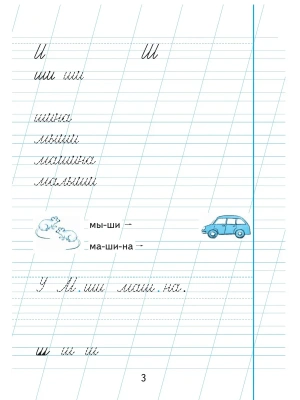 И Ш
ши ши
шина
мыши
машина
малыши
мы-ши –
ма-ши-на –
У М.ши маш.на.
ш ш ш
3